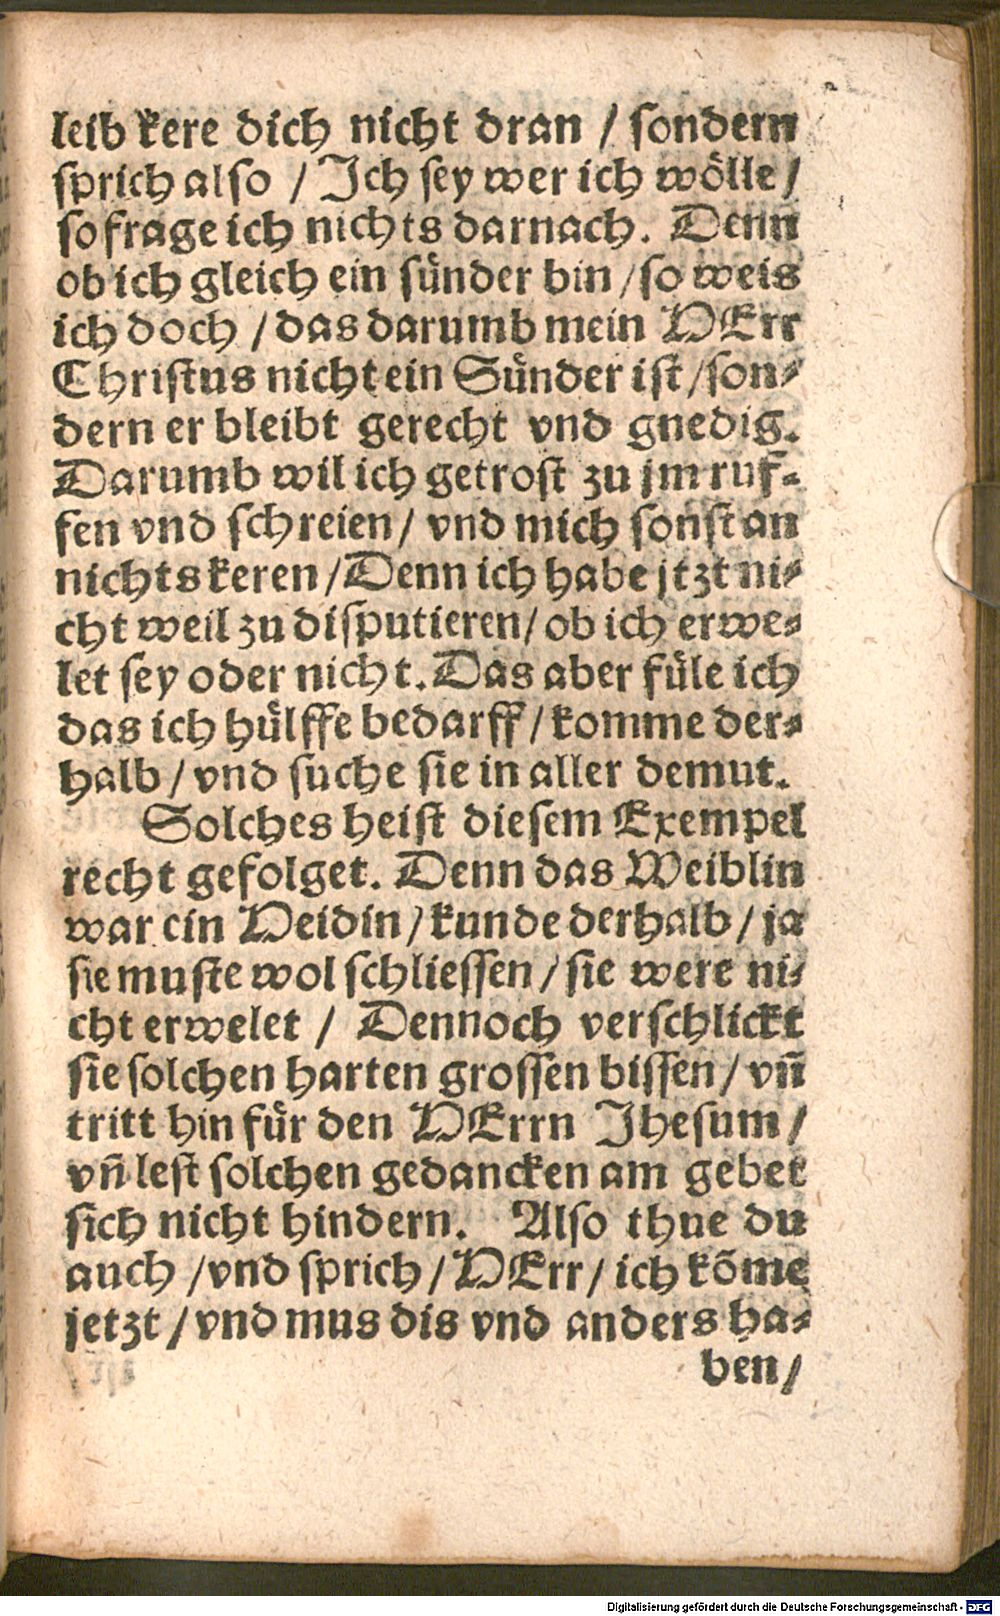 leib kere dich nicht dran / sondern
sprich also / Ich sey wer ich wölle /
so frage ich nichts darnach. Denn
ob ich gleich ein sünder bin / so weis
ich doch / das darumb mein HErr
Christus nicht ein Sünder ist / son⸗
dern er bleibt gerecht vnd gnedig.
Darumb wil ich getrost zu jm ruf⸗
fen vnd schreien / vnd mich sonst an
nichts keren / Denn ich habe jtzt ni⸗
cht weil zu disputieren / ob ich erwe⸗
let sey oder nicht. Das aber füle ich
das ich hülffe bedarff / komme der⸗
halb / vnd suche sie in aller demut.
Solches heist diesem Exempel
recht gefolget. Denn das Weiblin
war ein Heidin / kunde derhalb / ja
sie muste wol schliessen / sie were ni⸗
cht erwelet / Dennoch verschlickt
sie solchen harten grossen bissen / vñ
tritt hin für den HErrn Jhesum /
vñ lest solchen gedancken am gebet
sich nicht hindern. Also thue du
auch / vnd sprich / HErr / ich kõme
jetzt / vnd mus dis vnd anders ha⸗
ben /
Digitalisierung gefördert durch die Deutsche Forschungsgemeinschaft - DFG